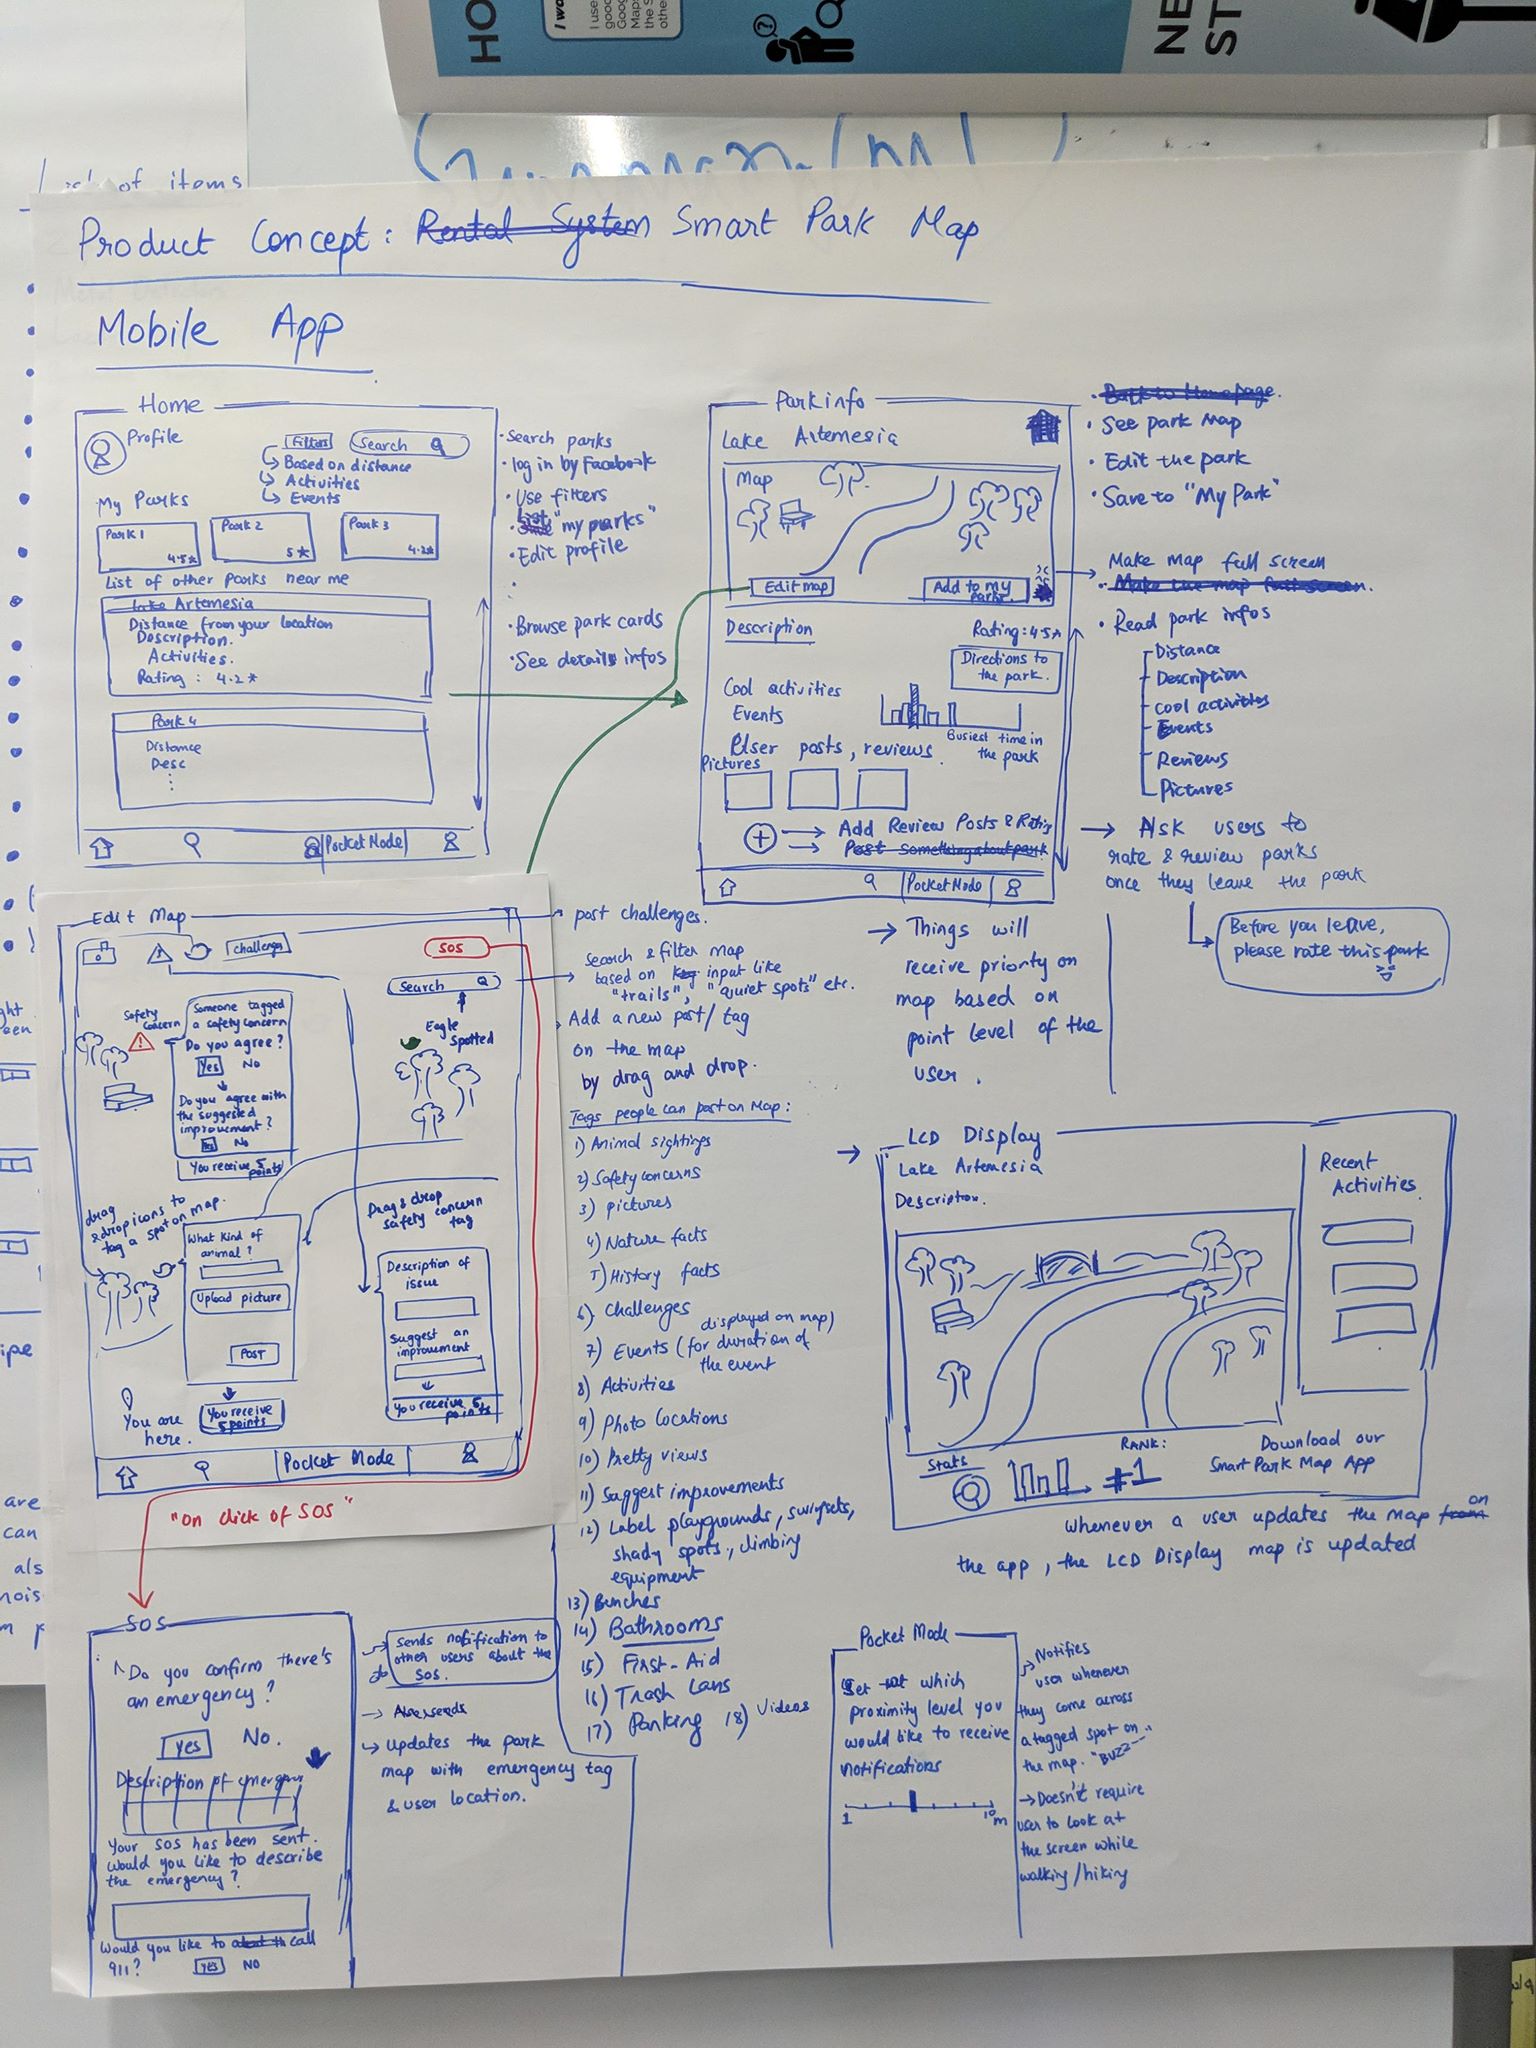 HO
I wo
I use
good
Goo
Map
the S
othe
NE
ST
of items
Product Concept: Rental System Smart Park Map
Mobile App
Home
Profile
Filters
Search
Based on distance
Activities
Events
My Parks
Park 1
4.5*
Park 2
5*
Park 3
4.2*
List of other parks near me
Lake Artemesia
Distance from your location
Description.
Activities.
Rating : 4.2*
Park 4
Distance
Desc
Pocket Mode
• Search parks
• log in by Facebook
• Use filters
• List "my parks"
• Edit profile
• Browse park cards
• See details infos
Park info
Lake Artemesia
Map
Edit map
Add to my
parks.
Description
Rating: 4.5*
Directions to
the park.
Cool activities
Events
Busiest time in
the park
User posts, reviews.
Pictures
Add Review Posts & Rating
Post something about park
Pocket Mode
• Back to Homepage.
• See park Map
• Edit the park
• Save to "My Park"
Make map full screen
• Make the map full screen.
• Read park infos
Distance
Description
cool activities
Events
Reviews
Pictures
→ Ask users to
rate & review parks
once they leave the park
Before you leave,
please rate this park
→ Things will
receive priority on
map based on
point level of the
user.
Edit Map
Challenge
SOS
Search
Safety
Concern
Someone tagged
a safety concern
Do you agree?
Yes No
Do you agree with
the suggested
improvement?
Yes No
You receive 5
points
Eagle
Spotted
drag
& drop icons to
tag a spot on map.
What kind of
animal?
Upload picture
POST
You receive
5 points
Drag & drop
safety concern
tag
Description of
issue
Suggest an
improvement
You receive 5
points
You are
here.
Pocket Mode
"On click of SOS"
post challenges.
search & filter map
based on input like
"trails", "quiet spots" etc.
Add a new post/tag
on the map
by drag and drop.
Tags people can post on Map:
1) Animal sightings
2) Safety concerns
3) pictures
4) Nature facts
5) History facts
6) Challenges
displayed on map)
7) Events (for duration of
the event
8) Activities
9) Photo locations
10) Pretty views
11) Suggest improvements
12) Label playgrounds, swingsets,
shady spots, climbing
equipment
13) Benches
14) Bathrooms
15) First-Aid
16) Trash Cans
17) Parking 18) Videos
→ LCD Display
Lake Artemesia
Description.
Recent
Activities
Stats
RANK:
#1
Download our
Smart Park Map App
Whenever a user updates the map from on
the app, the LCD Display map is updated
SOS
Do you confirm there's
an emergency?
Yes No.
Description of emergency
Your SOS has been sent.
Would you like to describe
the emergency?
Would you like to call
911? Yes No
→ Sends notification to
other users about the
SOS.
→ Also sends
→ Updates the park
map with emergency tag
& user location.
Pocket Mode
Set which
proximity level you
would like to receive
notifications
1 10m
→ Notifies
user whenever
they come across
a tagged spot on
the map. "BUZZ--"
→ Doesn't require
user to look at
the screen while
walking/hiking
ght
een
ipe
are
can
als
nois
m p